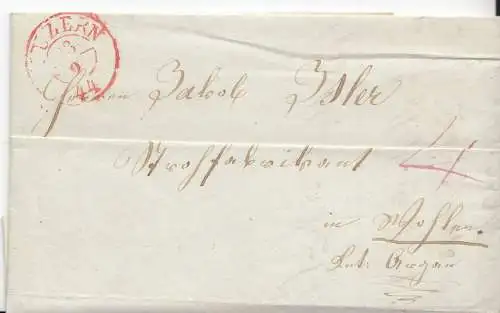 LUZERN
9
44
Herren Jakob Isler
Strohfabrikant 4
in Wohlen.
Knt: Argau